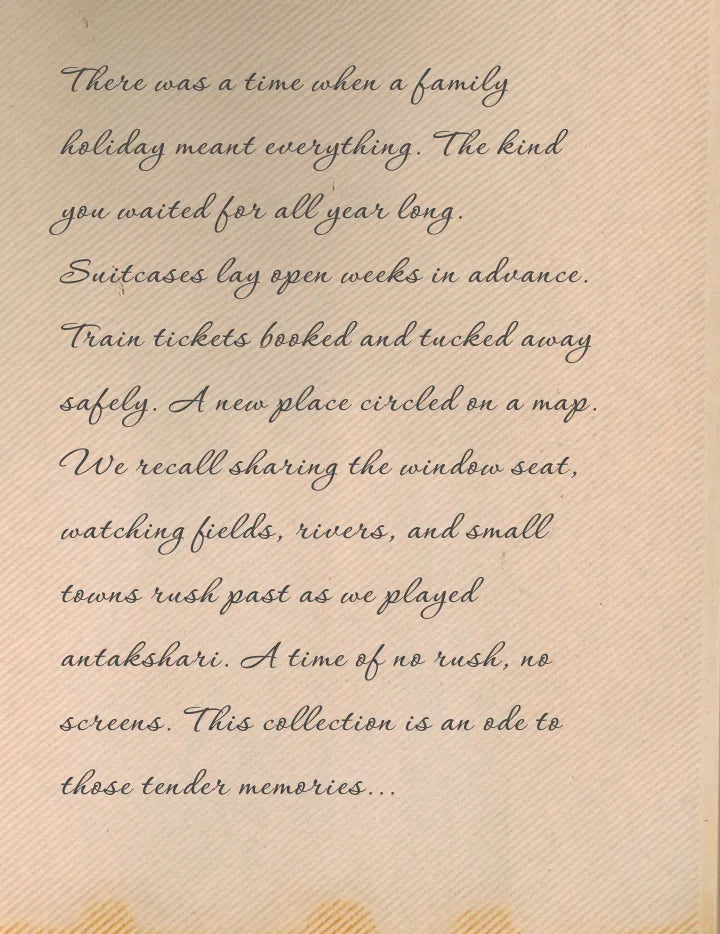 There was a time when a family
holiday meant everything. The kind
you waited for all year long.
Suitcases lay open weeks in advance.
Train tickets booked and tucked away
safely. A new place circled on a map.
We recall sharing the window seat,
watching fields, rivers, and small
towns rush past as we played
antakshari. A time of no rush, no
screens. This collection is an ode to
those tender memories...